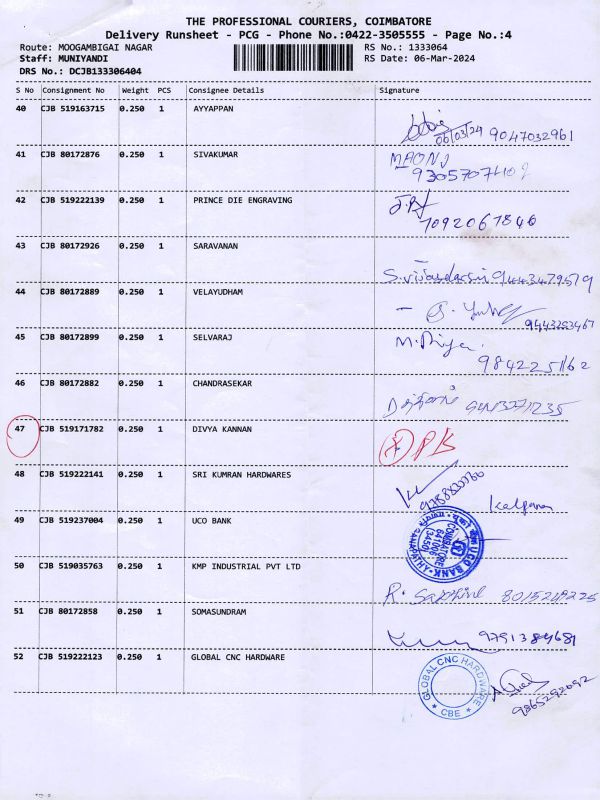 THE PROFESSIONAL COURIERS, COIMBATORE
Delivery Runsheet - PCG - Phone No.:0422-3505555 - Page No.:4
Route: MOOGAMBIGAI NAGAR RS No.: 1333064
Staff: MUNIYANDI RS Date: 06-Mar-2024
DRS No.: DCJB133306404
S No Consignment No Weight PCS Consignee Details Signature
40 CJB 519163715 0.250 1 AYYAPPAN
06/03/24 9047032961
41 CJB 80172876 0.250 1 SIVAKUMAR
42 CJB 519222139 0.250 1 PRINCE DIE ENGRAVING
7092067840
43 CJB 80172926 0.250 1 SARAVANAN
9443479579
44 CJB 80172889 0.250 1 VELAYUDHAM
45 CJB 80172899 0.250 1 SELVARAJ
M. Priya.
46 CJB 80172882 0.250 1 CHANDRASEKAR
47 CJB 519171782 0.250 1 DIVYA KANNAN
48 CJB 519222141 0.250 1 SRI KUMRAN HARDWARES
Kalpana
49 CJB 519237004 0.250 1 UCO BANK
UCO BANK
COIMBATORE
641006
(3450)
50 CJB 519035763 0.250 1 KMP INDUSTRIAL PVT LTD
51 CJB 80172858 0.250 1 SOMASUNDRAM
9791384681
52 CJB 519222123 0.250 1 GLOBAL CNC HARDWARE
GLOBAL CNC HARDWARE
CBE
9865292092